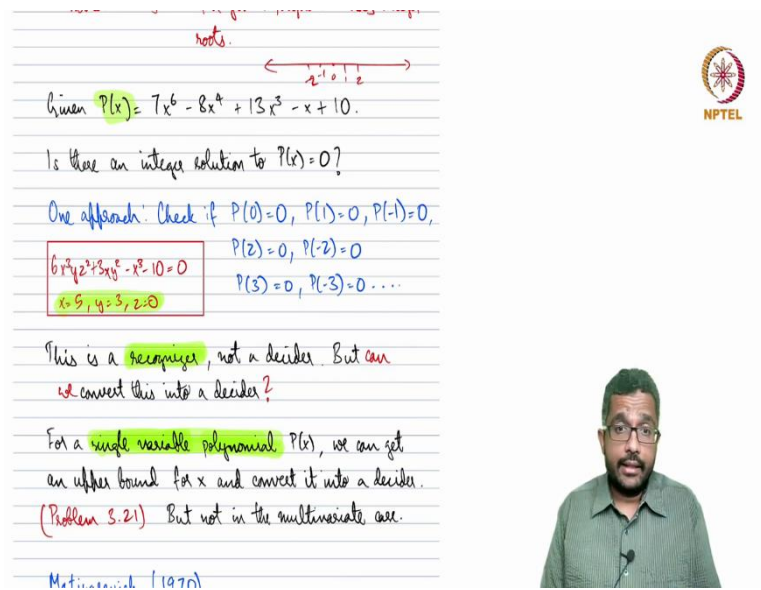 roots.
-2 -1 0 1 2
Given P(x) = 7x⁶ - 8x⁴ + 13x³ - x + 10.
Is there an integer solution to P(x) = 0?
One approach: Check if P(0)=0, P(1)=0, P(-1)=0,
P(2)=0, P(-2)=0
P(3)=0, P(-3)=0 ....
6x³yz²+3xy²-x³-10=0
x=5, y=3, z=0
This is a recognizer, not a decider. But can
we convert this into a decider?
For a single variable polynomial P(x), we can get
an upper bound for x and convert it into a decider.
(Problem 3.21) But not in the multivariate case.
(1970)
NPTEL